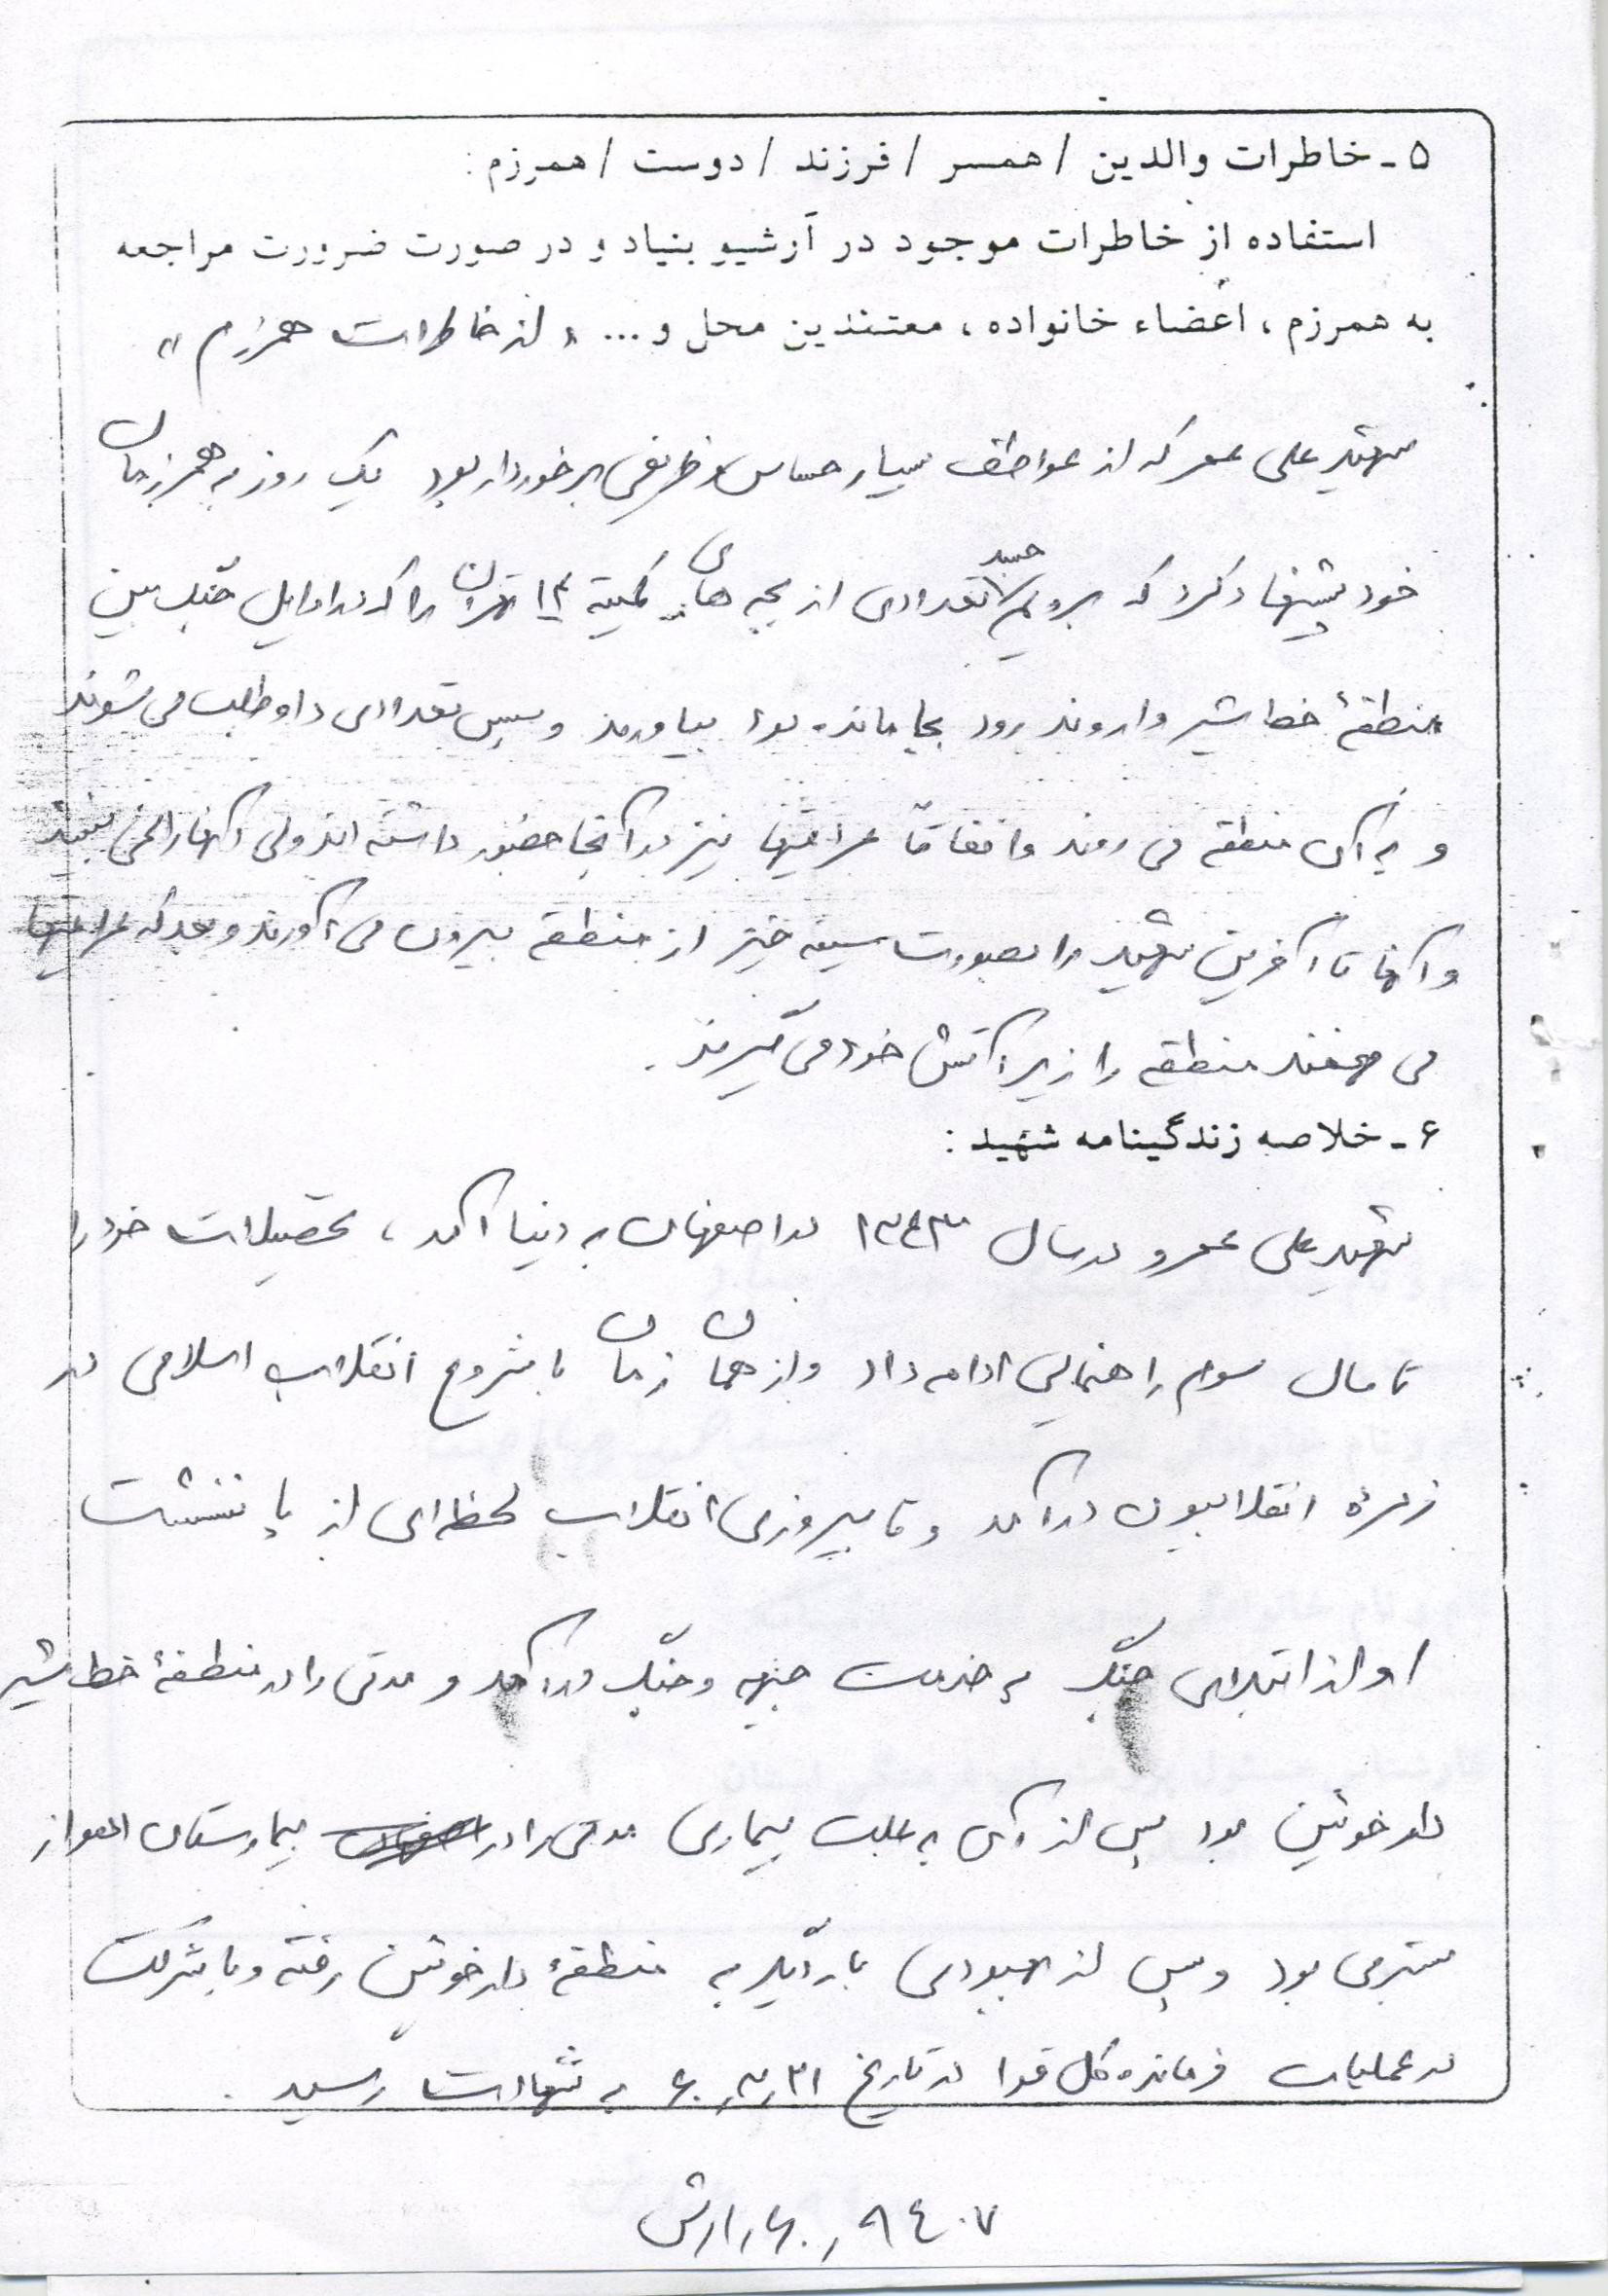 ۵ - خاطرات والدین / همسر / فرزند / دوست / همرزم :
استفاده از خاطرات موجود در آرشیو بنیاد و در صورت ضرورت مراجعه
به همرزم ، اعضاء خانواده ، معتندین محل و ... « از خاطرات همرزم »
شهید علی عمر که از عواطف بسیار حساس و ظریفی برخوردار بود یک روز به همرزمان
خود پیشنهاد کرد که برویم جسد تعدادی از بچه های کمیته ۱۴ تهران را که در اوایل جنگ بین
منطقهٔ خط شیر و اروند رود بجا مانده بود بیاورند و سپس تعدادی داوطلب می شوند
و به آن منطقه می روند و اتفاقاً عراقیها نیز در آنجا حضور داشته اند ولی آنها را نمی بینند
و آنها تا آخرین شهید را بصورت سینه خیز از منطقه بیرون می آورند و بعد که عراقیها
می فهمند منطقه را زیر آتش خود می گیرند .
۶ - خلاصه زندگینامه شهید :
شهید علی عمرو در سال ۱۳۴۳ در اصفهان به دنیا آمد ، تحصیلات خود را
تا سال سوم راهنمایی ادامه داد و از همان زمان با شروع انقلاب اسلامی در
زمرهٔ انقلابیون درآمد و تا پیروزی انقلاب لحظه ای از پا ننشست
او از ابتدای جنگ به خدمت جبهه و جنگ درآمد و مدتی را در منطقهٔ خط شیر
دارخوئین بود پس از آن به علت بیماری مدتی را در بیمارستان اهواز
بستری بود و پس از بهبودی بار دیگر به منطقهٔ دارخوئین رفته و با شرکت
در عملیات فرمانده کل قوا در تاریخ ۶۰٫۳٫۲۱ به شهادت رسید .